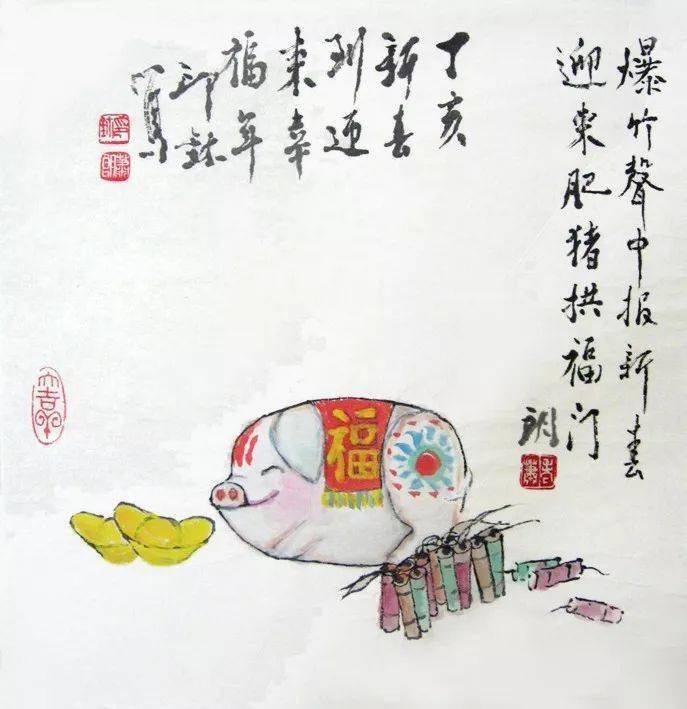 爆竹聲中报新春
迎来肥猪拱福门
丁亥
新春
到迎
来幸
福年
邱
写
福